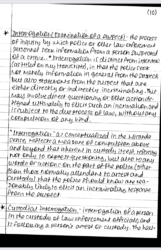 (10)
Interrogation (Examination of a Suspect) - the process
of inquiry by which police or other law enforcement
personnel draw information from a person suspected
of a crime. * Interrogation is distinct from interview
not merely information in general from the person,
but also statements from the suspect that are
either directly or indirectly incriminating. This
may involve direct questioning or other action de-
signed ultimately to elicit such an incrimination and
is subject to due process of law, without any
compulsion of any kind.
"Interrogation" as conceptualized in the Miranda
case, reflects a measure of compulsion above
and beyond that inherent in custody itself, referring
not only to express questioning, but also to any
words or actions on the part of the police (other
than those normally attendant to arrest and
custody) that the police should know are rea-
sonably likely to elicit an incriminating response
from the suspect.
Custodial Interrogation - interrogation of a person
in the custody of law enforcement officials and
is following a person's arrest or custody. The